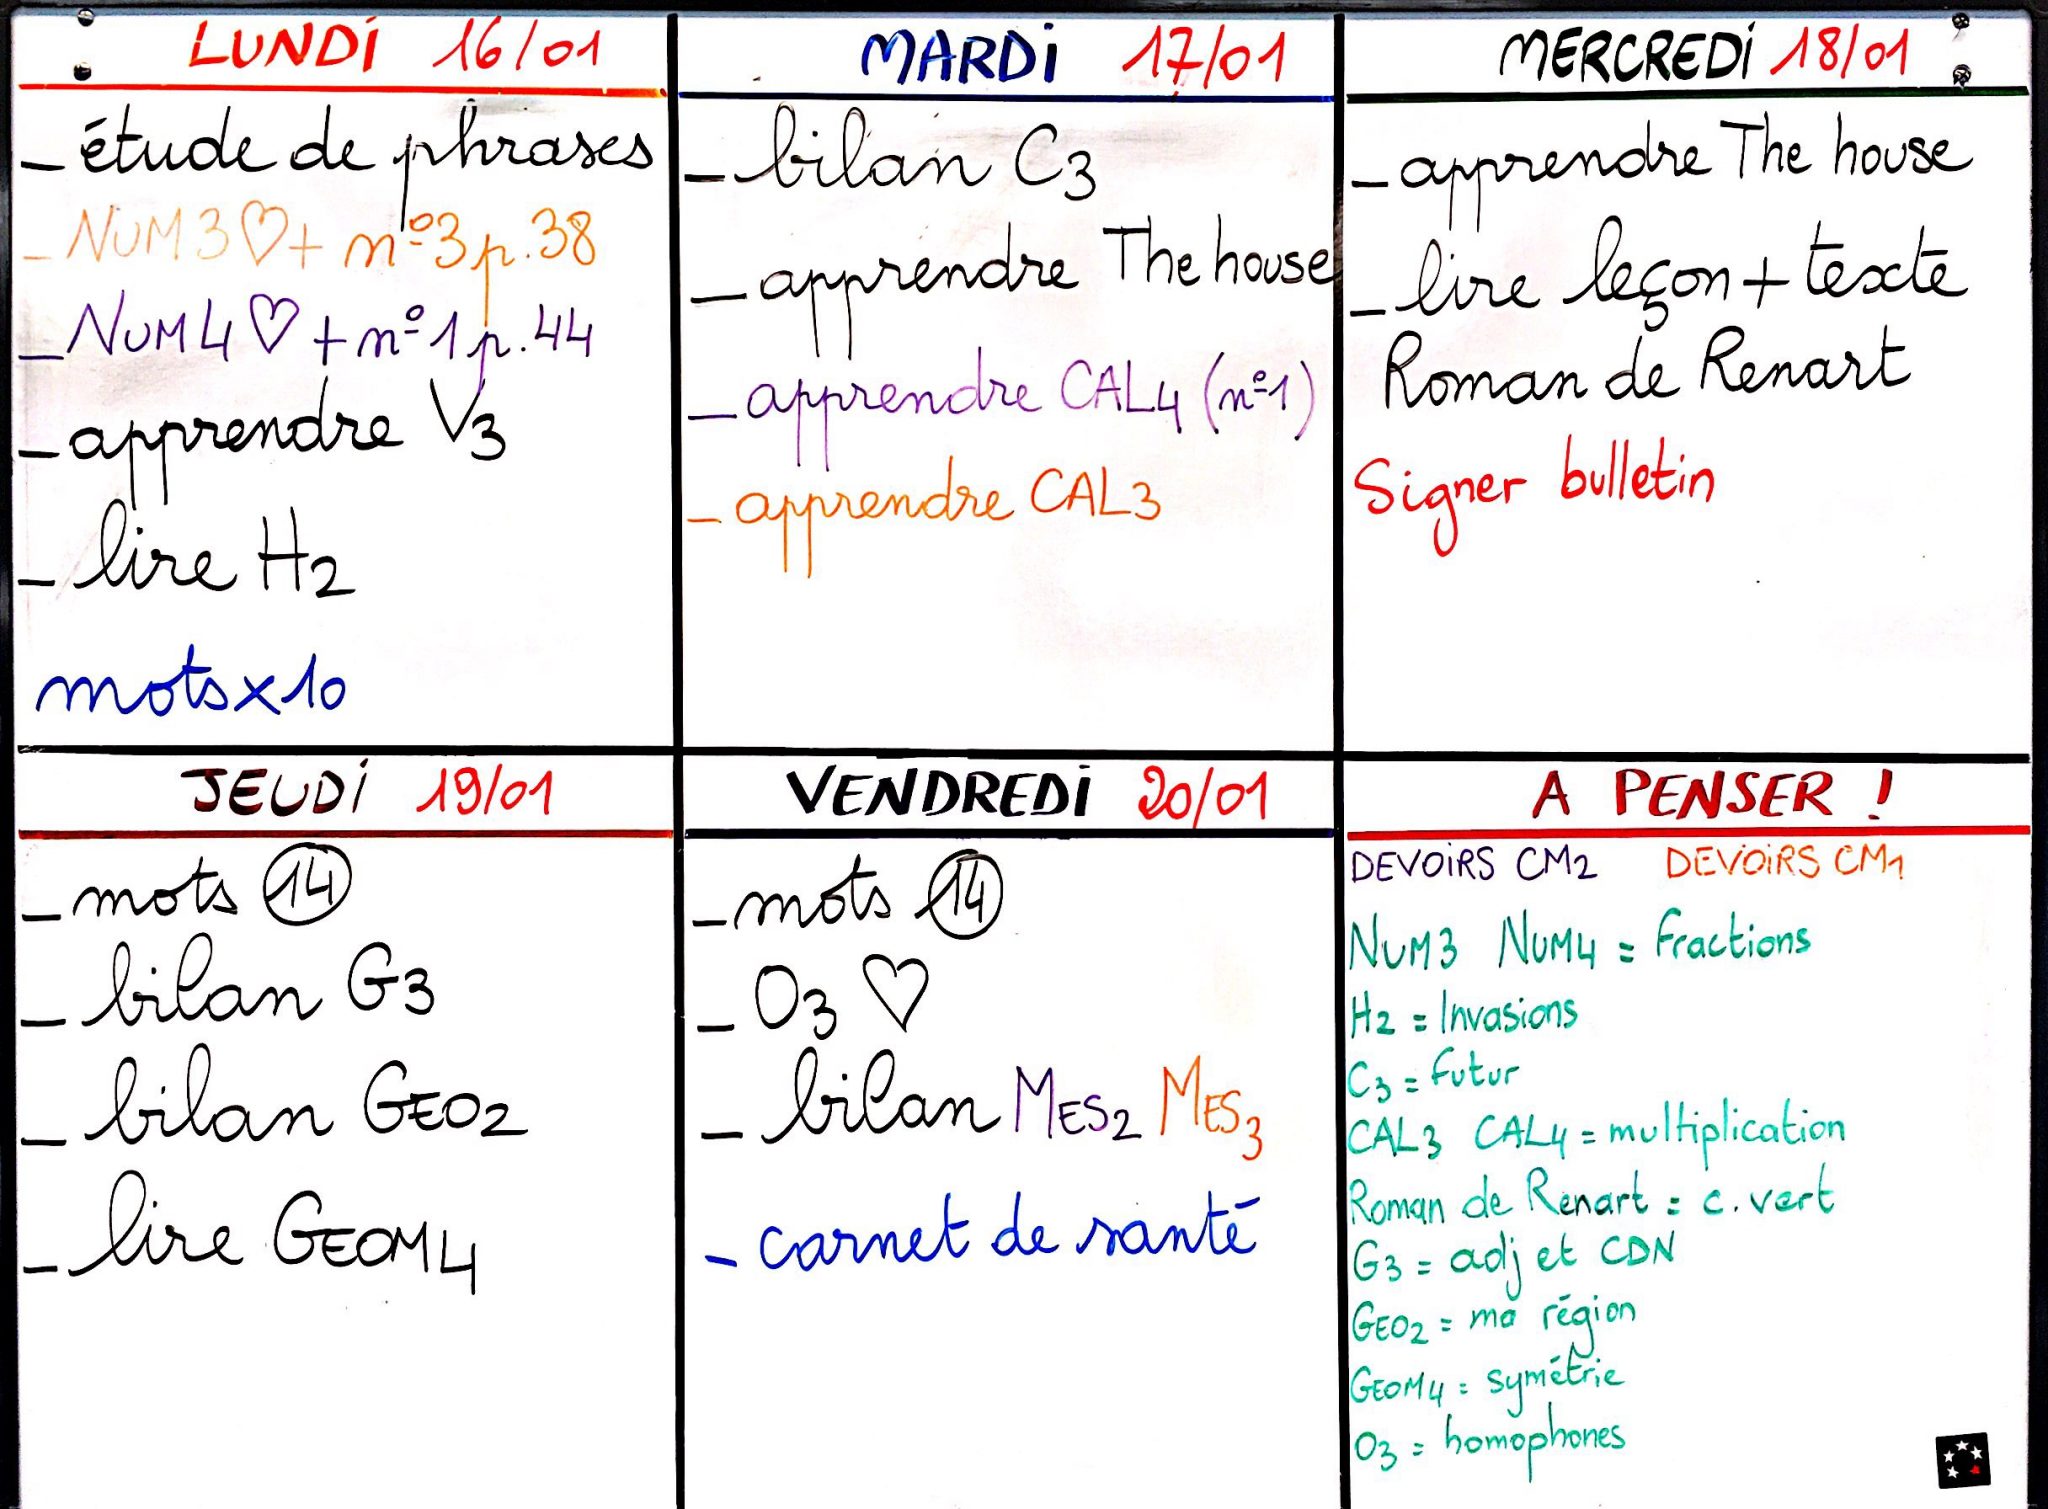 LUNDI 16/01
- étude de phrases
- NUM3 ♡ + n°3 p.38
- NUM4 ♡ + n°1 p.44
- apprendre V3
- lire H2
mots x 10
MARDI 17/01
- bilan C3
- apprendre The house
- apprendre CAL4 (n°1)
- apprendre CAL3
MERCREDI 18/01
- apprendre The house
- lire leçon + texte
Roman de Renart
Signer bulletin
JEUDI 19/01
- mots 14
- bilan G3
- bilan GEO2
- lire GEOM4
VENDREDI 20/01
- mots 14
- O3 ♡
- bilan MES2 MES3
- carnet de santé
A PENSER !
DEVOIRS CM2 DEVOIRS CM1
NUM3 NUM4 = fractions
H2 = Invasions
C3 = futur
CAL3 CAL4 = multiplication
Roman de Renart = c. vert
G3 = adj et CDN
GEO2 = ma région
GEOM4 = symétrie
O3 = homophones